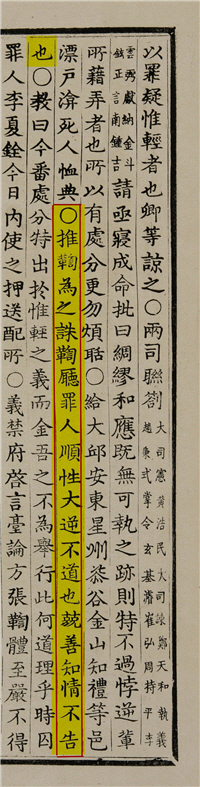 以罪疑惟輕者也卿等諒之〇兩司聯劄大司憲黃浩民大司諫鄭天和執義趙秉式掌令玄基濬崔弘周持平李
雲秀獻納金斗鉉正言南鍾吉請亟寢成命批曰綢繆和應旣無可執之跡則特不過悖逆輩
所藉弄者也所以有處分更勿煩聒〇給大邱安東星州漆谷金山知禮等邑
漂戶渰死人恤典〇推鞫為之誅鞫廳罪人順性大逆不道也兢善知情不告
也〇教曰今番處分特出於惟輕之義而金吾之不為舉行此何道理乎時囚
罪人李夏銓今日內使之押送配所〇義禁府啓言臺論方張鞫體至嚴不得